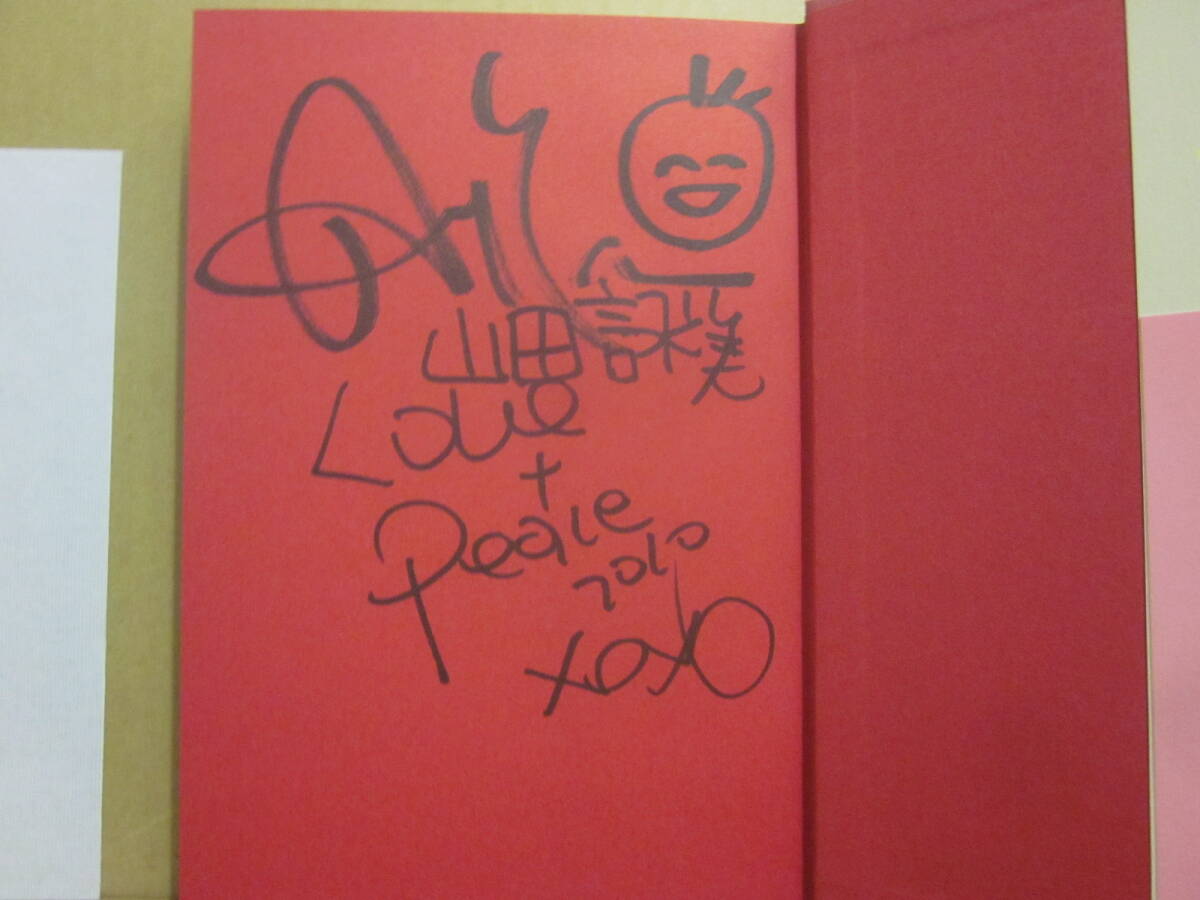 Amy
山田詠美
Love
+
Peace
2010
XOXO